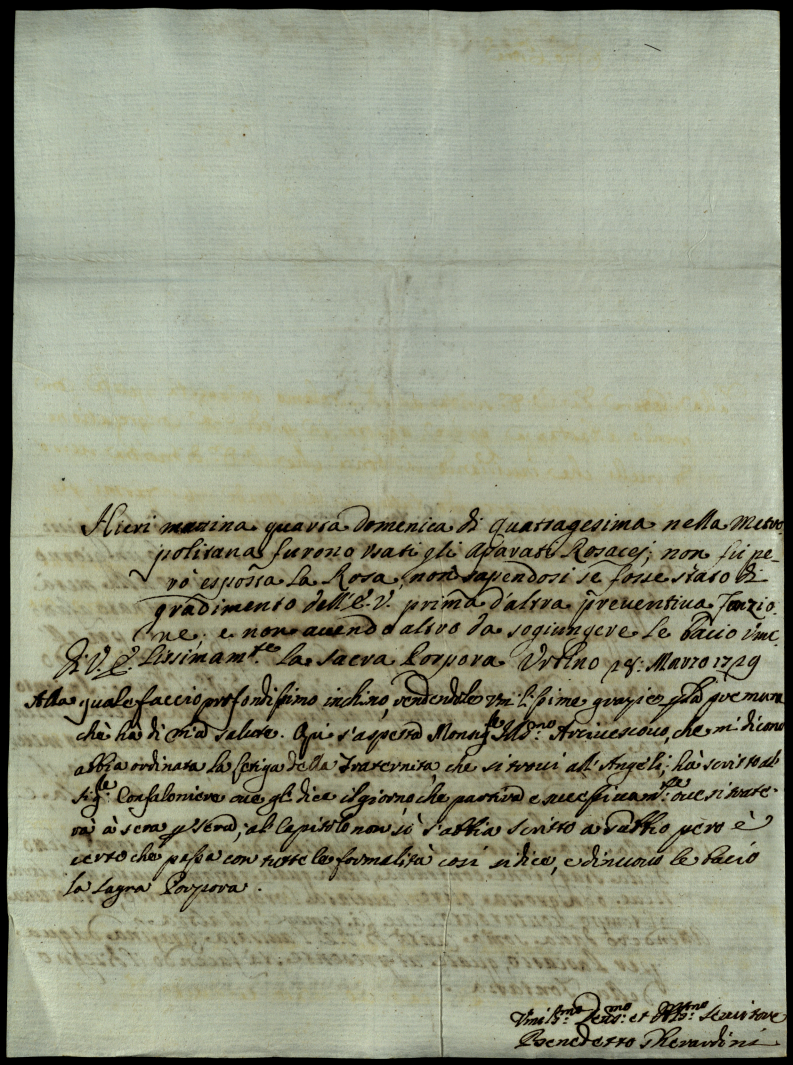 Hieri mattina quarta domenica di quatragesima nella Metro
politana furono usati gli Aparati Rosacej; non fù pe-
rò esposta la Rosa, non sapendosi se fosse stato di
gradimento dell'E.V. prima d'altra preventiva Funzio-
ne; e non avendo altro da sogiungere le bacio Umi
Di V.E. lissimam.te la sacra Porpora Urbino 28: Marzo 1729
Alla quale faccio profondissimo inchino, rendendole um.lissime grazie p la premura
che hà di mia salute. Qui s'aspetta Monsig.re Ill.mo Arcivescovo, che mi dicono
abbia ordinata la letiga della Fraternita, che si trovi all'Angeli; hà scritto al
Sig.re Confaloniere ove gli dice il giorno che partirà e successivam.te ove si trate-
rà à sera p sera; al Capitolo non sò s'abbia scritto a dattio però è
certo che passa con tutte le formalità così si dice, e di nuovo le bacio
la sagra Porpora.
Umil.mo Dev.mo et Obb.mo Servitore
Benedetto Gherardini